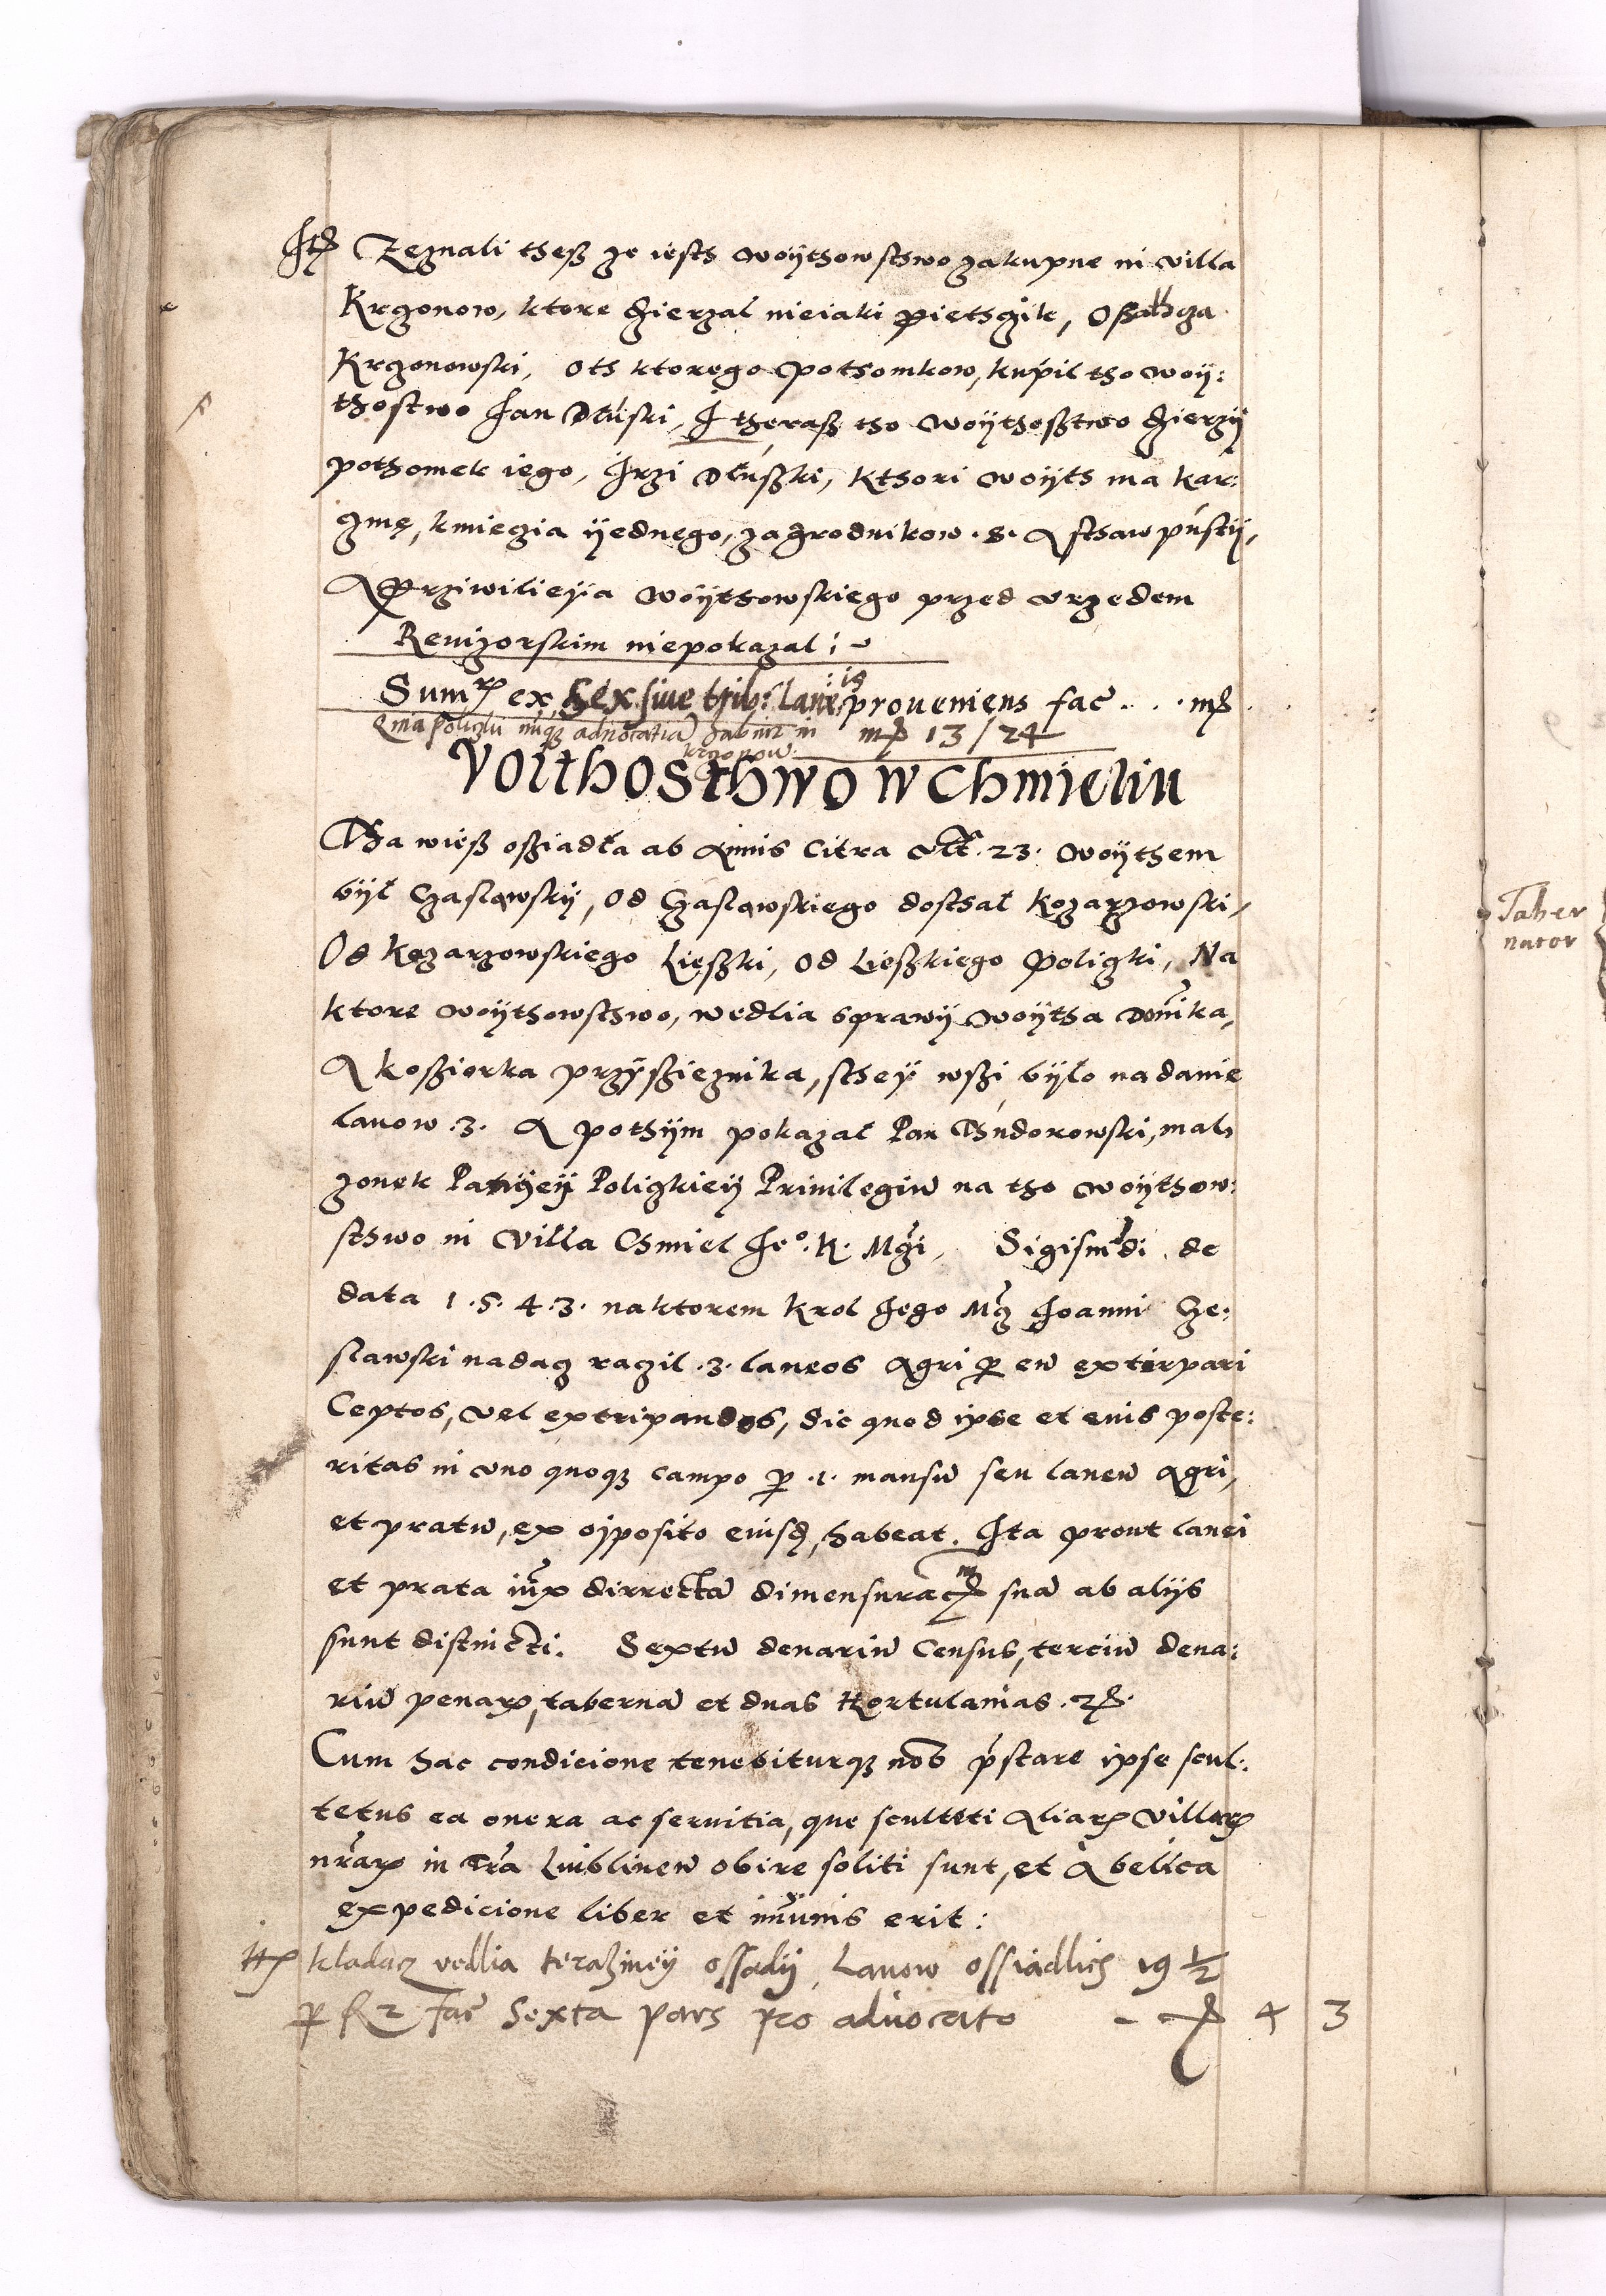 Itē Zeznali theß ze iesth woÿthowsthwo zakupne in villa
Krzonow, ktore dzierzal nieiaki pietrzik,
Krzonowski, oth ktorego pothomkow, kupil tho woÿ:
thostwo Jan Dluski, J theraß tho woÿthoßtwo dzierzÿ
pothomek iego, Jrzi Dlußki, kthori woÿth ma kar:
zmę, kmiezia ÿednego, zagrodnikow .8. A sthaw pusti,
A Prziwilieÿia woÿthowskiego przed vrzedem
Reuizorskim niepokazal : ~
Sumā ex sex siue trib: laneis proueniens fac̄ . . . mr̄
Quia Policzki nūqz aduocatiā habuit in mr̄ 13/24
krzonow
Voithosthwo w Chmieliu
Tha wieß oßiadla ab Annis Citra vlt. 23. woÿthem
bÿl Czaslawskÿ, od Czaslawskiego dosthal kozarzowski,
Od kozarzowskiego Lięßki, od Ließkiego Policzki, Na
ktore woÿthowsthwo, wedlia sprawÿ woÿtha Domīka,
A koßiorka przÿßieznika, theÿ wßi bÿlo nadanie
lanow .3. A pothÿm pokazal Pan Thudorowski, mal,
zonek Panÿeÿ Policzkieÿ Priuilegiū na tho woÿthow:
sthwo in villa Chmiel Je°. K. Mczi, Sigismūdi de
data 1.5.4.3. naktorem krol Jego Mcz Joanni Cze:
slawski nadacz raczil .3. laneos Agri p eū extirpari
Ceptos, vel extripandos, sic quod ipse et euis poste:
ritas in vno quoqz campo p .1. mansū seu laneū Agri,
et pratū, ex opposito eiusdē, habeat. Ita prout lanei
et prata iux dirrectā dimensuracōm suā ab alÿs
sunt distincti. Sextū denariū Census, terciū dena:
riū penarꝝ, tabernā et duas Hortulanias .zc.
Cum hac condicione tenebiturqz nob prestare ipse scul:
tetus ea onera ac seruitia, que sculteti Aliarꝝ Villarꝝ
nrarꝝ in Tra Lublinen obire soliti sunt, et A bellica
expedicione liber et immunis erit :
Itē kladacz vedlia terazneÿ ossadÿ, Lanow ossiadlich 19 ½
p f 2 fac̄ Sexta pars pro aduocato - 4 3
Taber
nator